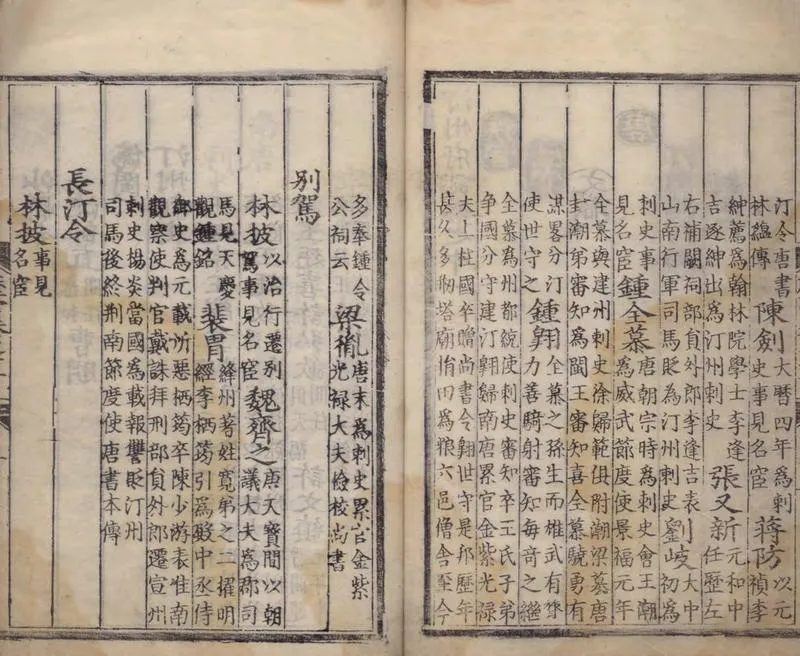 汀令唐書林緫傳陳劍大曆四年為刺史事見名宦蔣防以元禎李
紳薦為翰林院學士李逢吉逐紳出為汀州刺史張又新元和中任歷左
右補闕祠部員外郎李逢吉表山南行軍司馬貶為汀州刺史劉岐大中初為
刺史事見名宦鍾全慕唐朝宗時為刺史會王潮為威武節度使景福元年
全慕與建州刺史徐歸範俱附潮梁篡唐封潮弟審知為閩王審知喜全慕驍勇有
謀畧分汀使世守之鍾翱全慕之孫生而雄武有膂力善騎射審知每奇之繼
全慕為州都統使刺史審知卒王氏子弟争國分守建汀翱歸南唐累官金紫光禄
大夫上柱國卒贈尚書令翱世守是邦歷年甚久多剏塔廟捨田為粮六邑僧舍至今
多奉鍾令公祠云梁胤唐末為刺史累官金紫光禄大夫檢校尚書
别駕
林披以治行遷别駕事見名宦魏齊之唐天寶間以朝議大夫為郡司
馬見天慶觀鍾銘裴胄絳州著姓寛弟之二擢明經李栖筠引為殿中丞侍
御史為元載所惡栖筠卒陳少游表淮南觀察使判官戴誅拜刑部員外郎遷宣州
刺史楊炎當國為載報讐貶汀州司馬後終荆南節度使唐書本傳
長汀令
林披事見名宦